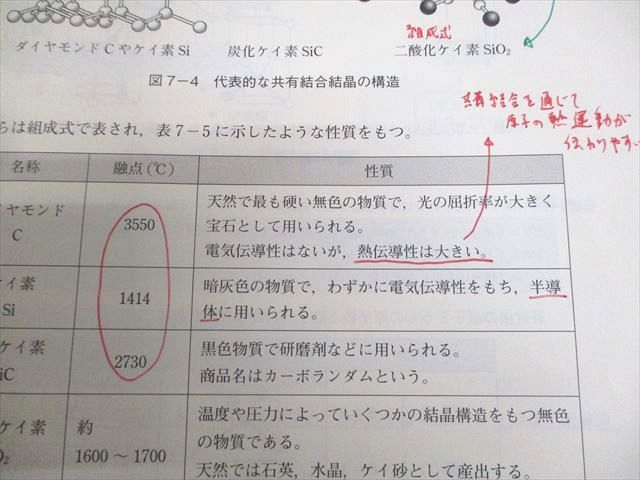 組成式
ダイヤモンド C やケイ素 Si 炭化ケイ素 SiC 二酸化ケイ素 SiO₂
図 7-4 代表的な共有結合結晶の構造
共有結合を通じて
原子の熱運動が
伝わりやすい
らは組成式で表され，表 7-5 に示したような性質をもつ。
名称 融点(℃) 性質
イヤモンド
C
3550
天然で最も硬い無色の物質で，光の屈折率が大きく
宝石として用いられる。
電気伝導性はないが，熱伝導性は大きい。
イ素
Si
1414
暗灰色の物質で，わずかに電気伝導性をもち，半導
体に用いられる。
ケイ素
iC
2730
黒色物質で研磨剤などに用いられる。
商品名はカーボランダムという。
ケイ素
O₂
約
1600 ～ 1700
温度や圧力によっていくつかの結晶構造をもつ無色
の物質である。
天然では石英，水晶，ケイ砂として産出する。